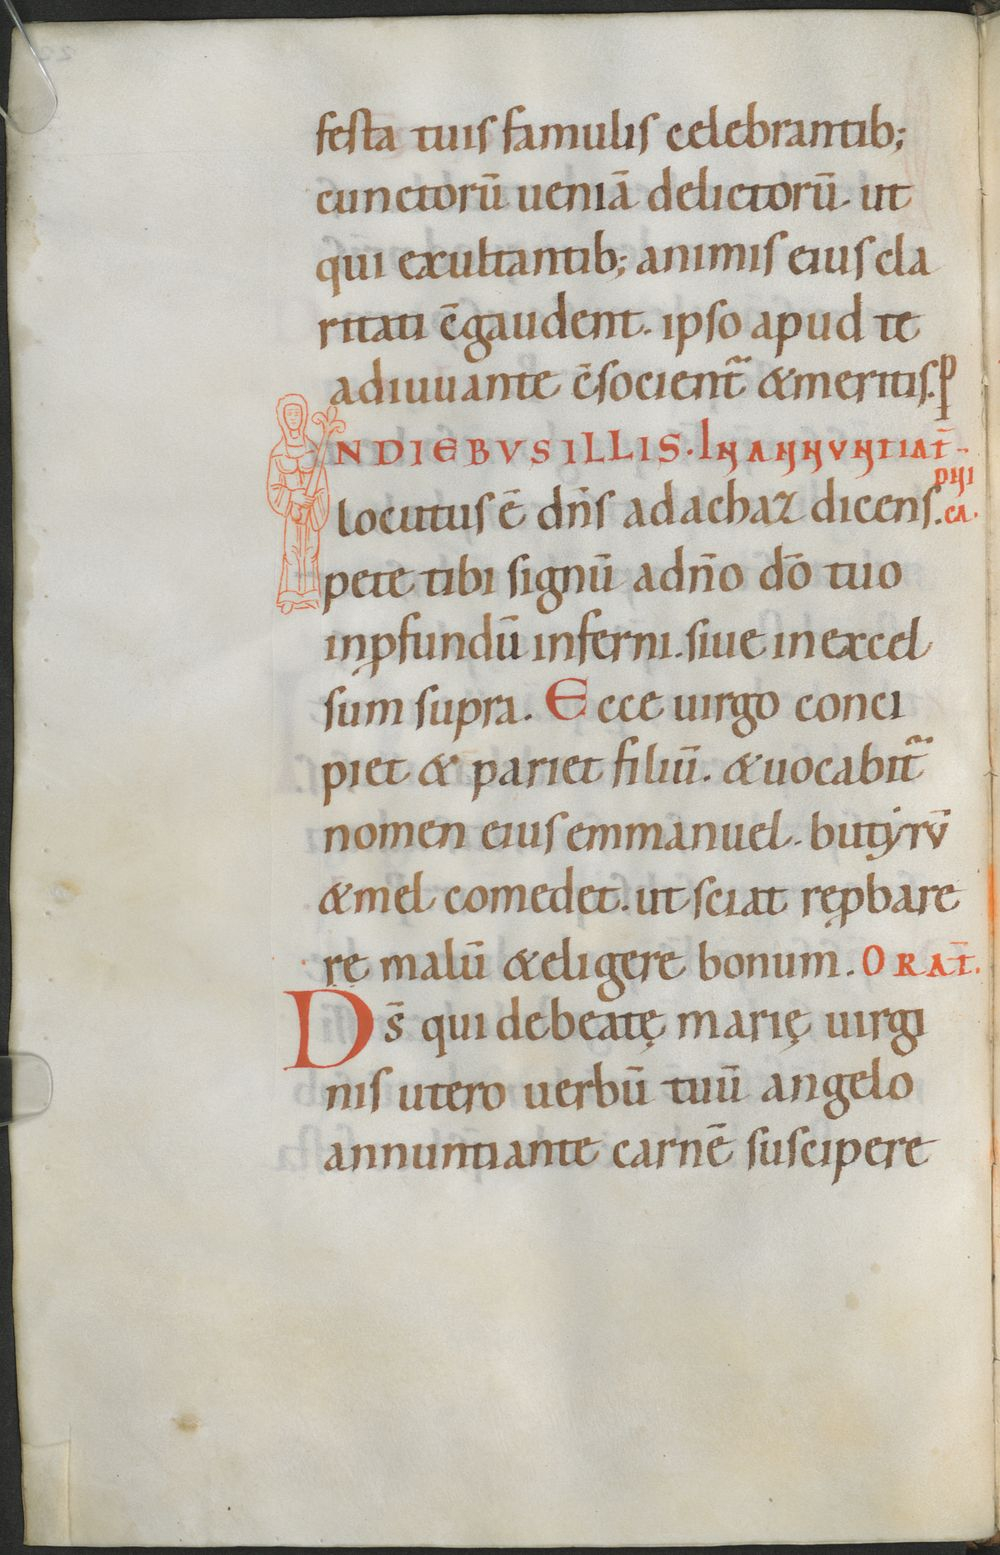 festa tuis famulis celebrantib;
cunctorū ueniā delictorū. ut
qui exultantib; animis eius cla
ritati ēgaudent. ipso apud te
adiuuante ēsocient᷑ &meritis. ꝑ
NDIEBVS ILLIS. INANNVNTIAT̄
locutus ē dn̄s adachaz dicens.
phica.
pete tibi signū adn̄o dō tuo
inꝓfundū inferni. siue inexcel
sum supra. Ecce uirgo conci
piet & pariet filiū. &uocabit᷑
nomen eius emmanuel. butyrū
&mel comedet. ut sciat reꝓbare
rę malū &eligere bonum. ORAT̄.
Ds̄ qui debeatę marię uirgi
nis utero uerbū tuū angelo
annuntiante carnē suscipere